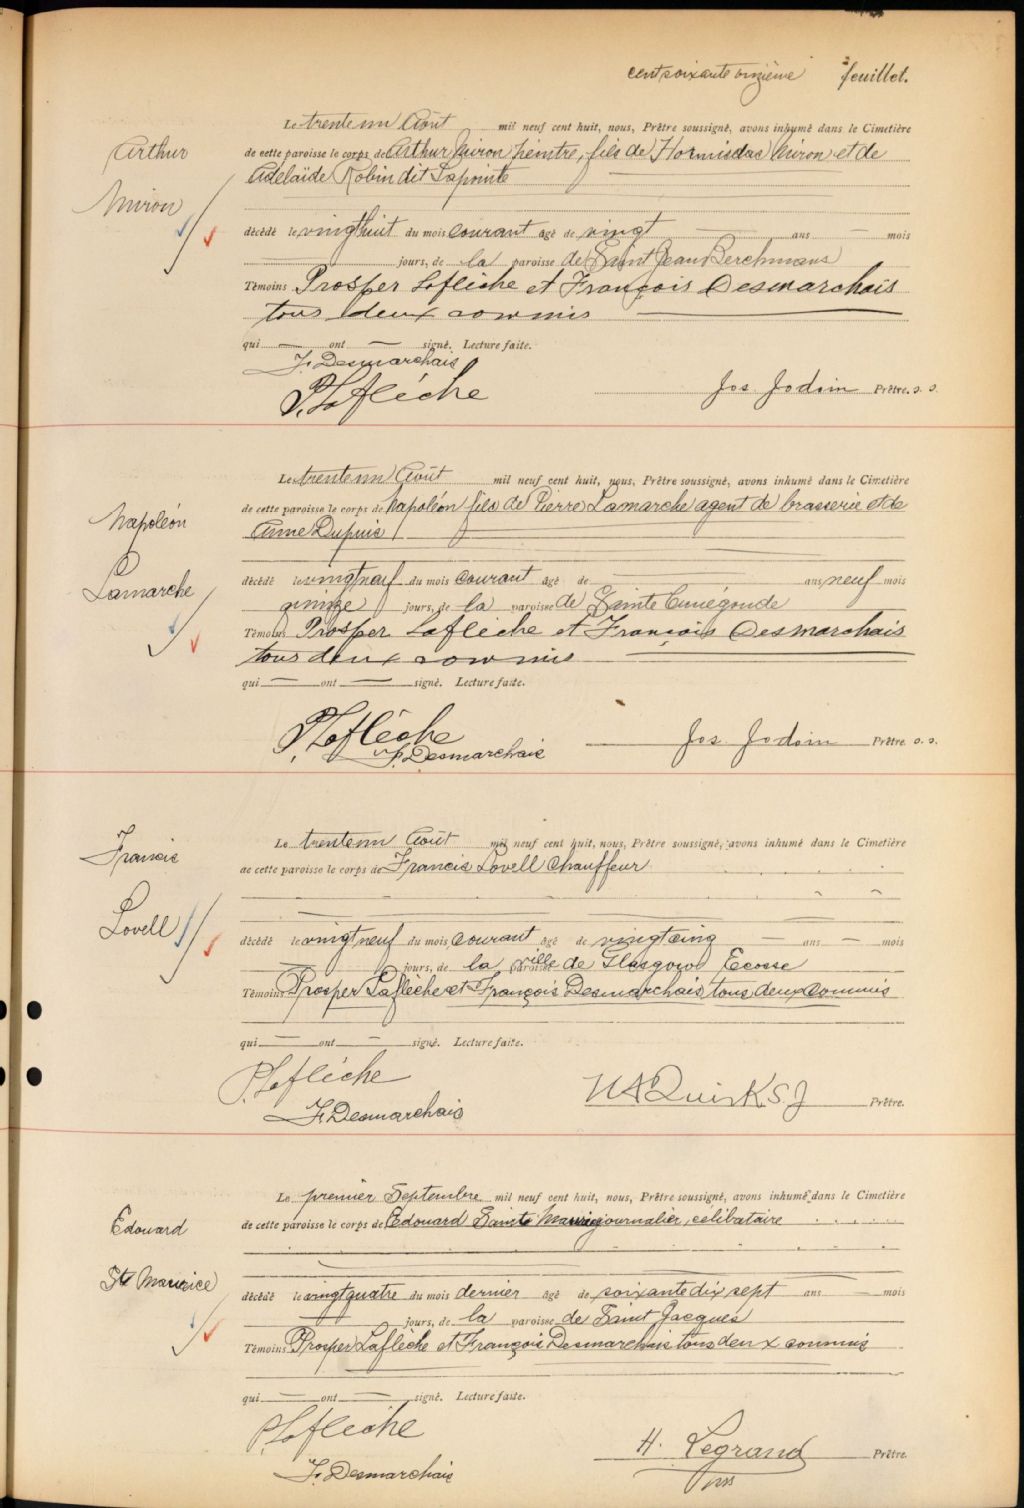 cent soixante onzième feuillet.
Le trente un Août mil neuf cent huit, nous, Prêtre soussigné, avons inhumé dans le Cimetière
Arthur
de cette paroisse le corps de Arthur Miron peintre, fils de Hormisdas Miron et de
Adelaïde Robin dit Lapointe
Miron
décédé le vingt huit du mois courant âgé de vingt ans mois
jours, de la paroisse de Saint Jean Berchmans
Témoins Prosper Laflèche et François Desmarchais
tous deux commis
qui ont signé. Lecture faite.
F. Desmarchais
P. Laflèche
Jos. Jodoin Prêtre. s. s.
Le trente un Août mil neuf cent huit, nous, Prêtre soussigné, avons inhumé dans le Cimetière
de cette paroisse le corps de Napoléon fils de Pierre Lamarche agent de brasserie et de
Napoléon
Anne Dupuis
Lamarche
décédé le vingt neuf du mois courant âgé de ans neuf mois
quinze jours, de la paroisse de Sainte Cunégonde
Témoins Prosper Laflèche et François Desmarchais
tous deux commis
qui ont signé. Lecture faite.
P. Laflèche
F. Desmarchais
Jos. Jodoin Prêtre. s. s.
Francis
Le trente un Août mil neuf cent huit, nous, Prêtre soussigné, avons inhumé dans le Cimetière
de cette paroisse le corps de Francis Lovell Chauffeur
Lovell
décédé le vingt neuf du mois courant âgé de vingt cinq ans mois
jours, de la ville paroisse de Glasgow Ecosse
Témoins Prosper Laflèche et François Desmarchais, tous deux commis
qui ont signé. Lecture faite.
P. Laflèche
F. Desmarchais
Quirk S. J Prêtre.
Le premier Septembre mil neuf cent huit, nous, Prêtre soussigné, avons inhumé dans le Cimetière
de cette paroisse le corps de Edouard Sainte Maurice journalier, célibataire
Edouard
Ste Maurice
décédé le vingt quatre du mois dernier âgé de soixante dix sept ans mois
jours, de la paroisse de Saint Jacques
Témoins Prosper Laflèche et François Desmarchais tous deux commis
qui ont signé. Lecture faite.
P. Laflèche
F. Desmarchais
H. Legrand Prêtre.
pss